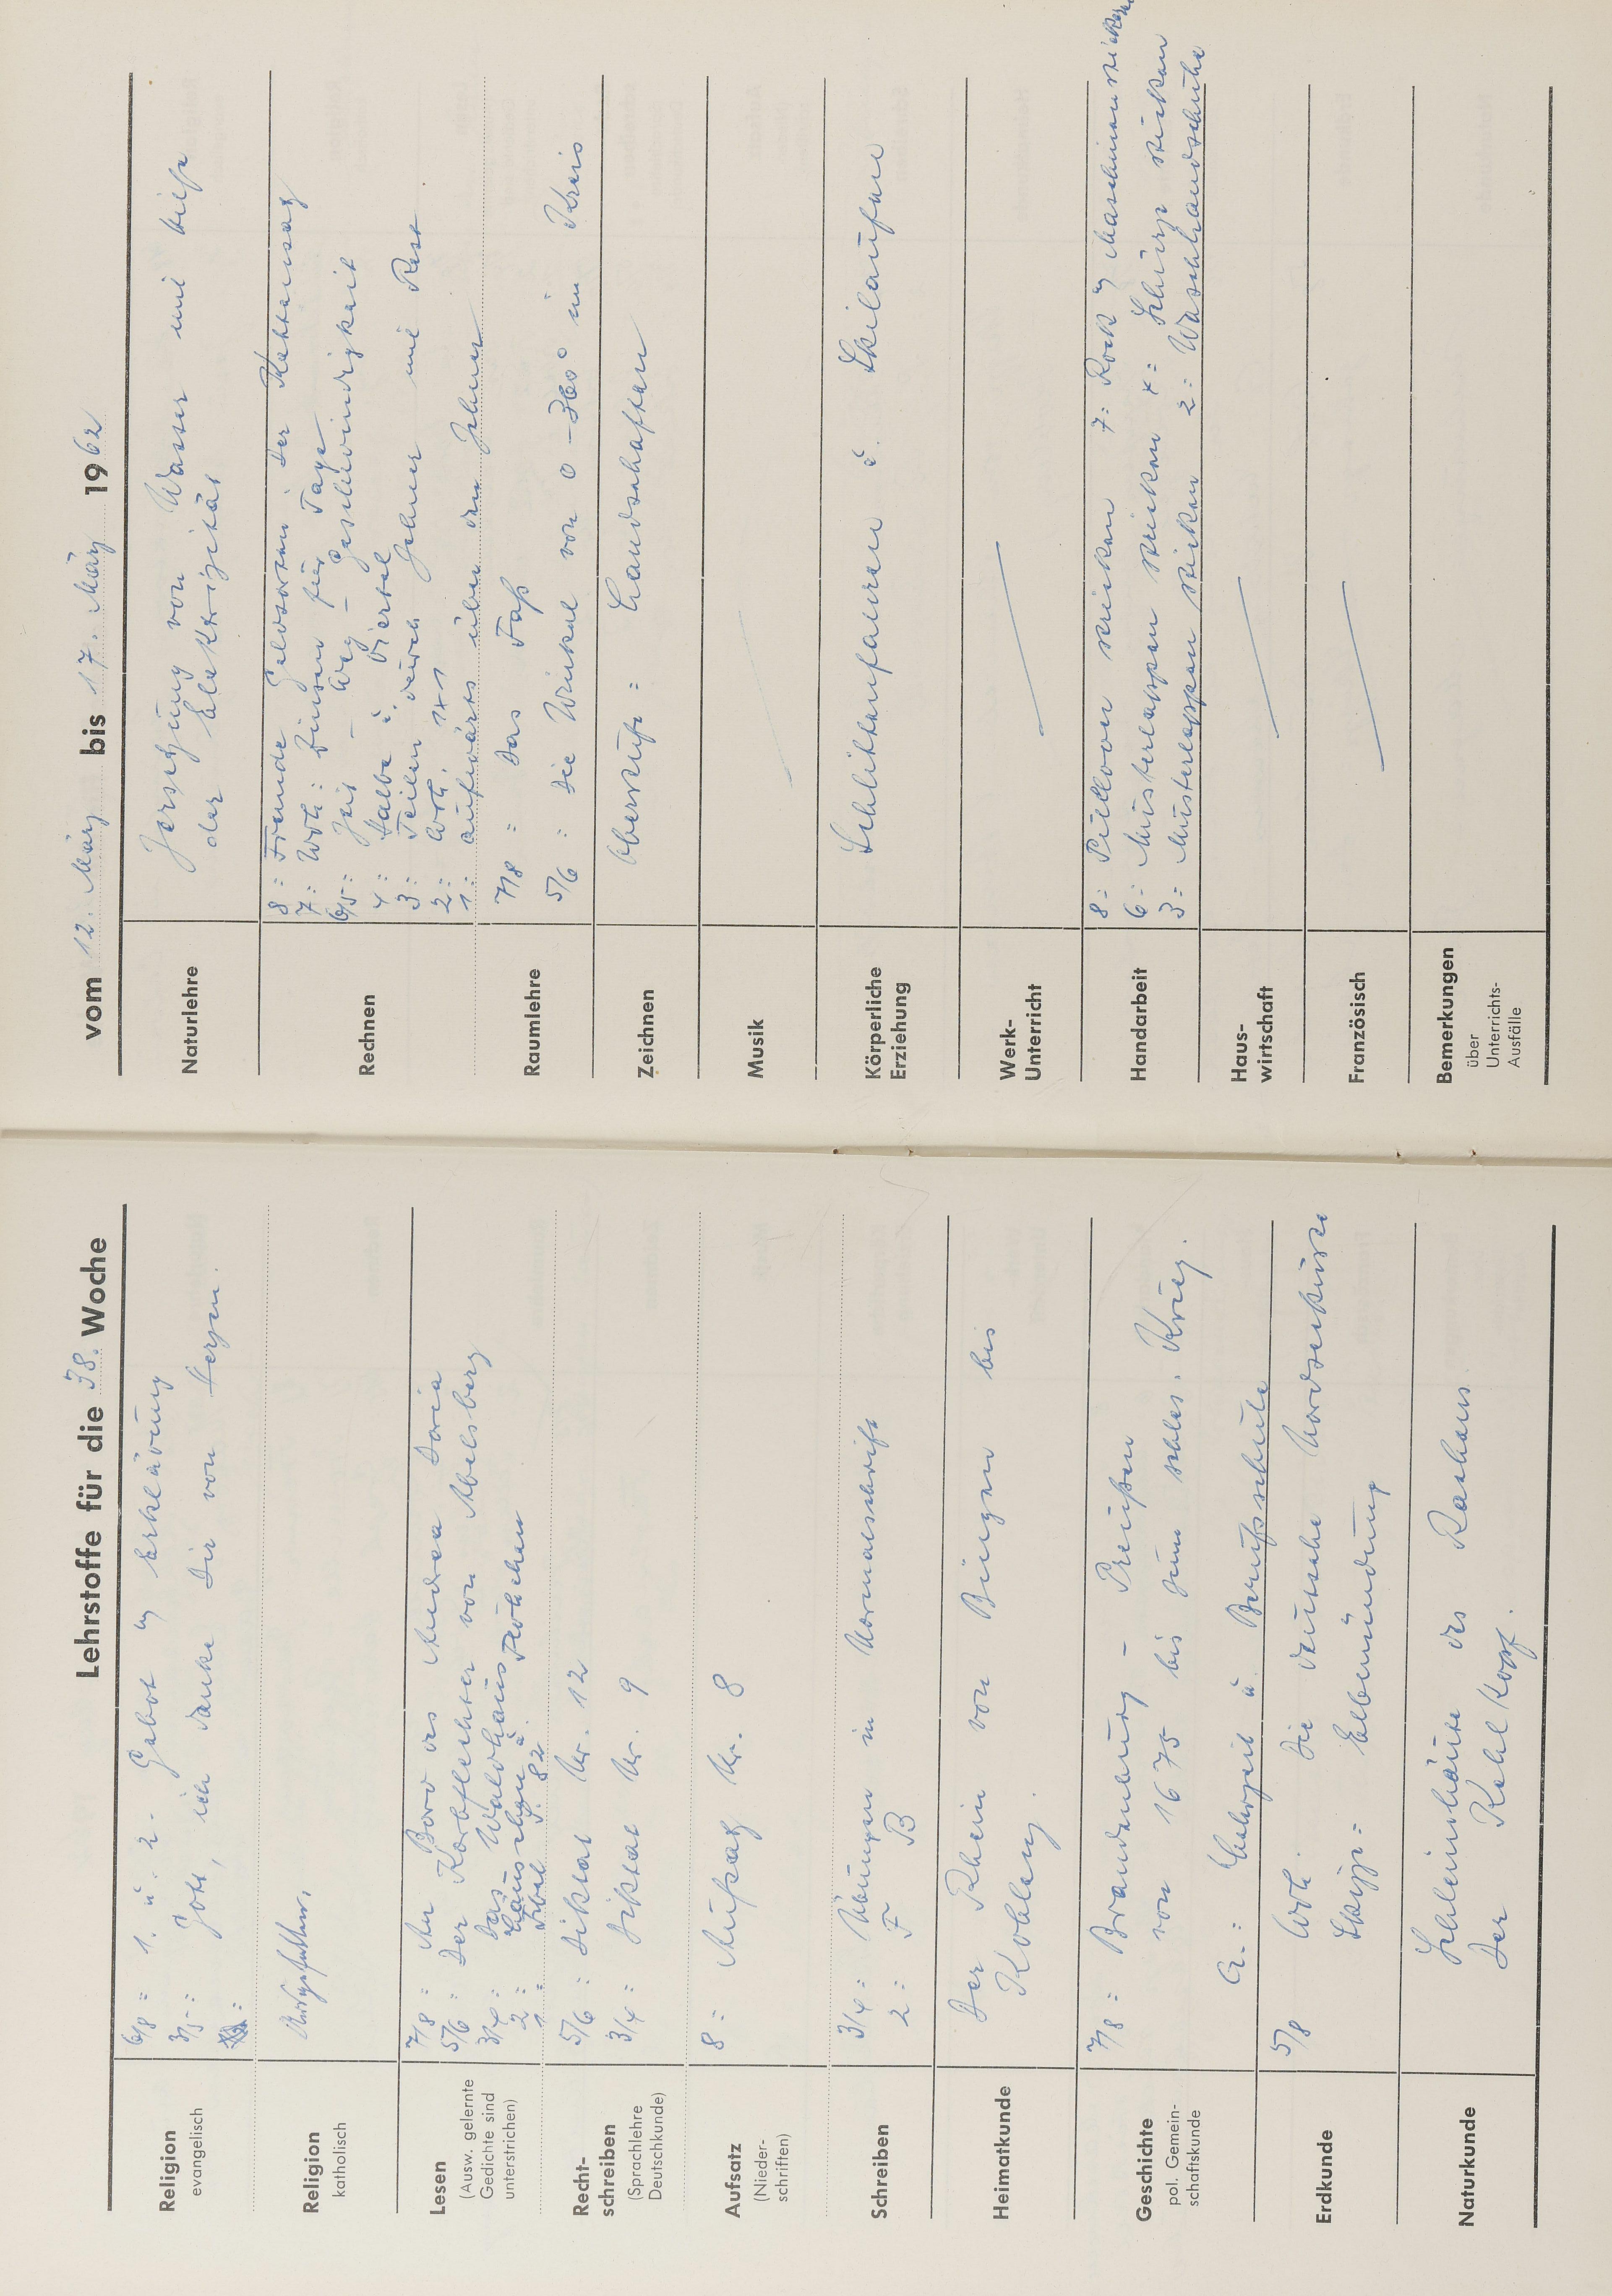 Lehrstoffe für die 38. Woche
Religion
evangelisch
6/8 = 1. u. 2. Gebot u Erklärung
3/5 = Gott, ich danke Dir von Herzen.
Religion
katholisch
Ausgefallen.
Lesen
(Ausw. gelernte
Gedichte sind
unterstrichen)
7/8 = An Bord des Andrea Doria
5/6 = Der Korbflechter von Abelsberg
3/4 = Das Waldhaus
2 = Häuschen u. Flöckchen
1 = Fibel S. 82
Recht-
schreiben
(Sprachlehre
Deutschkunde)
5/6 = Diktat Nr. 12
3/4 = Diktat Nr. 9
Aufsatz
(Nieder-
schriften)
8 = Aufsatz Nr. 8
Schreiben
3/4 = Übungen in Normalschrift
2 = F B
Heimatkunde
Der Rhein von Bingen bis
Koblenz.
Geschichte
pol. Gemein-
schaftskunde
7/8 = Brandenburg – Preußen
von 1675 bis zum schles. Krieg.
G.: Lehrzeit u. Berufsschule
Erdkunde
5/8 Wdh. Die deutsche Nordseeküste
Skizze = Elbemündung
Naturkunde
Schleimhäute des Rachens
Der Kehlkopf.
vom 12. März bis 17. März 1962
Naturlehre
Zersetzung von Wasser mit Hilfe
der Elektrizität
Rechnen
8 = Fremde Geldsorten: Der Kettensatz
7 = Wdh: Zinsen für Tage
6/5 = Zeit – Weg – Geschwindigkeit
4 = Halbe u. Viertel
3 = Teilen durch Zehner mit Rest
2 = Wdh. 1x1
1 = aufwärts über den Zehner
Raumlehre
7/8 = Das Faß
5/6 = Die Winkel von 0 – 360° im Kreis
Zeichnen
Oberstufe = Landschaften
Musik
Körperliche
Erziehung
Schlittenfahren u. Skilaufen
Werk-
Unterricht
Handarbeit
8 = Pullover stricken 7 = Rock u Maschinensticken
6 = Musterlappen stricken 4 = Schürze sticken
3 = Musterlappen sticken 2 = Waschhandschuhe
Haus-
wirtschaft
Französisch
Bemerkungen
über
Unterrichts-
Ausfälle